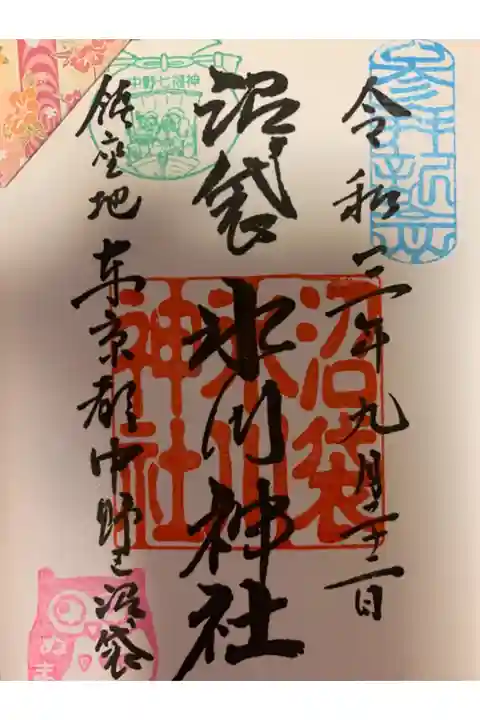 令和三年九月二十二日
沼袋 氷川神社
沼袋
氷川
神社
中野七福神
鎮座地 東京都中野区沼袋
ぬま